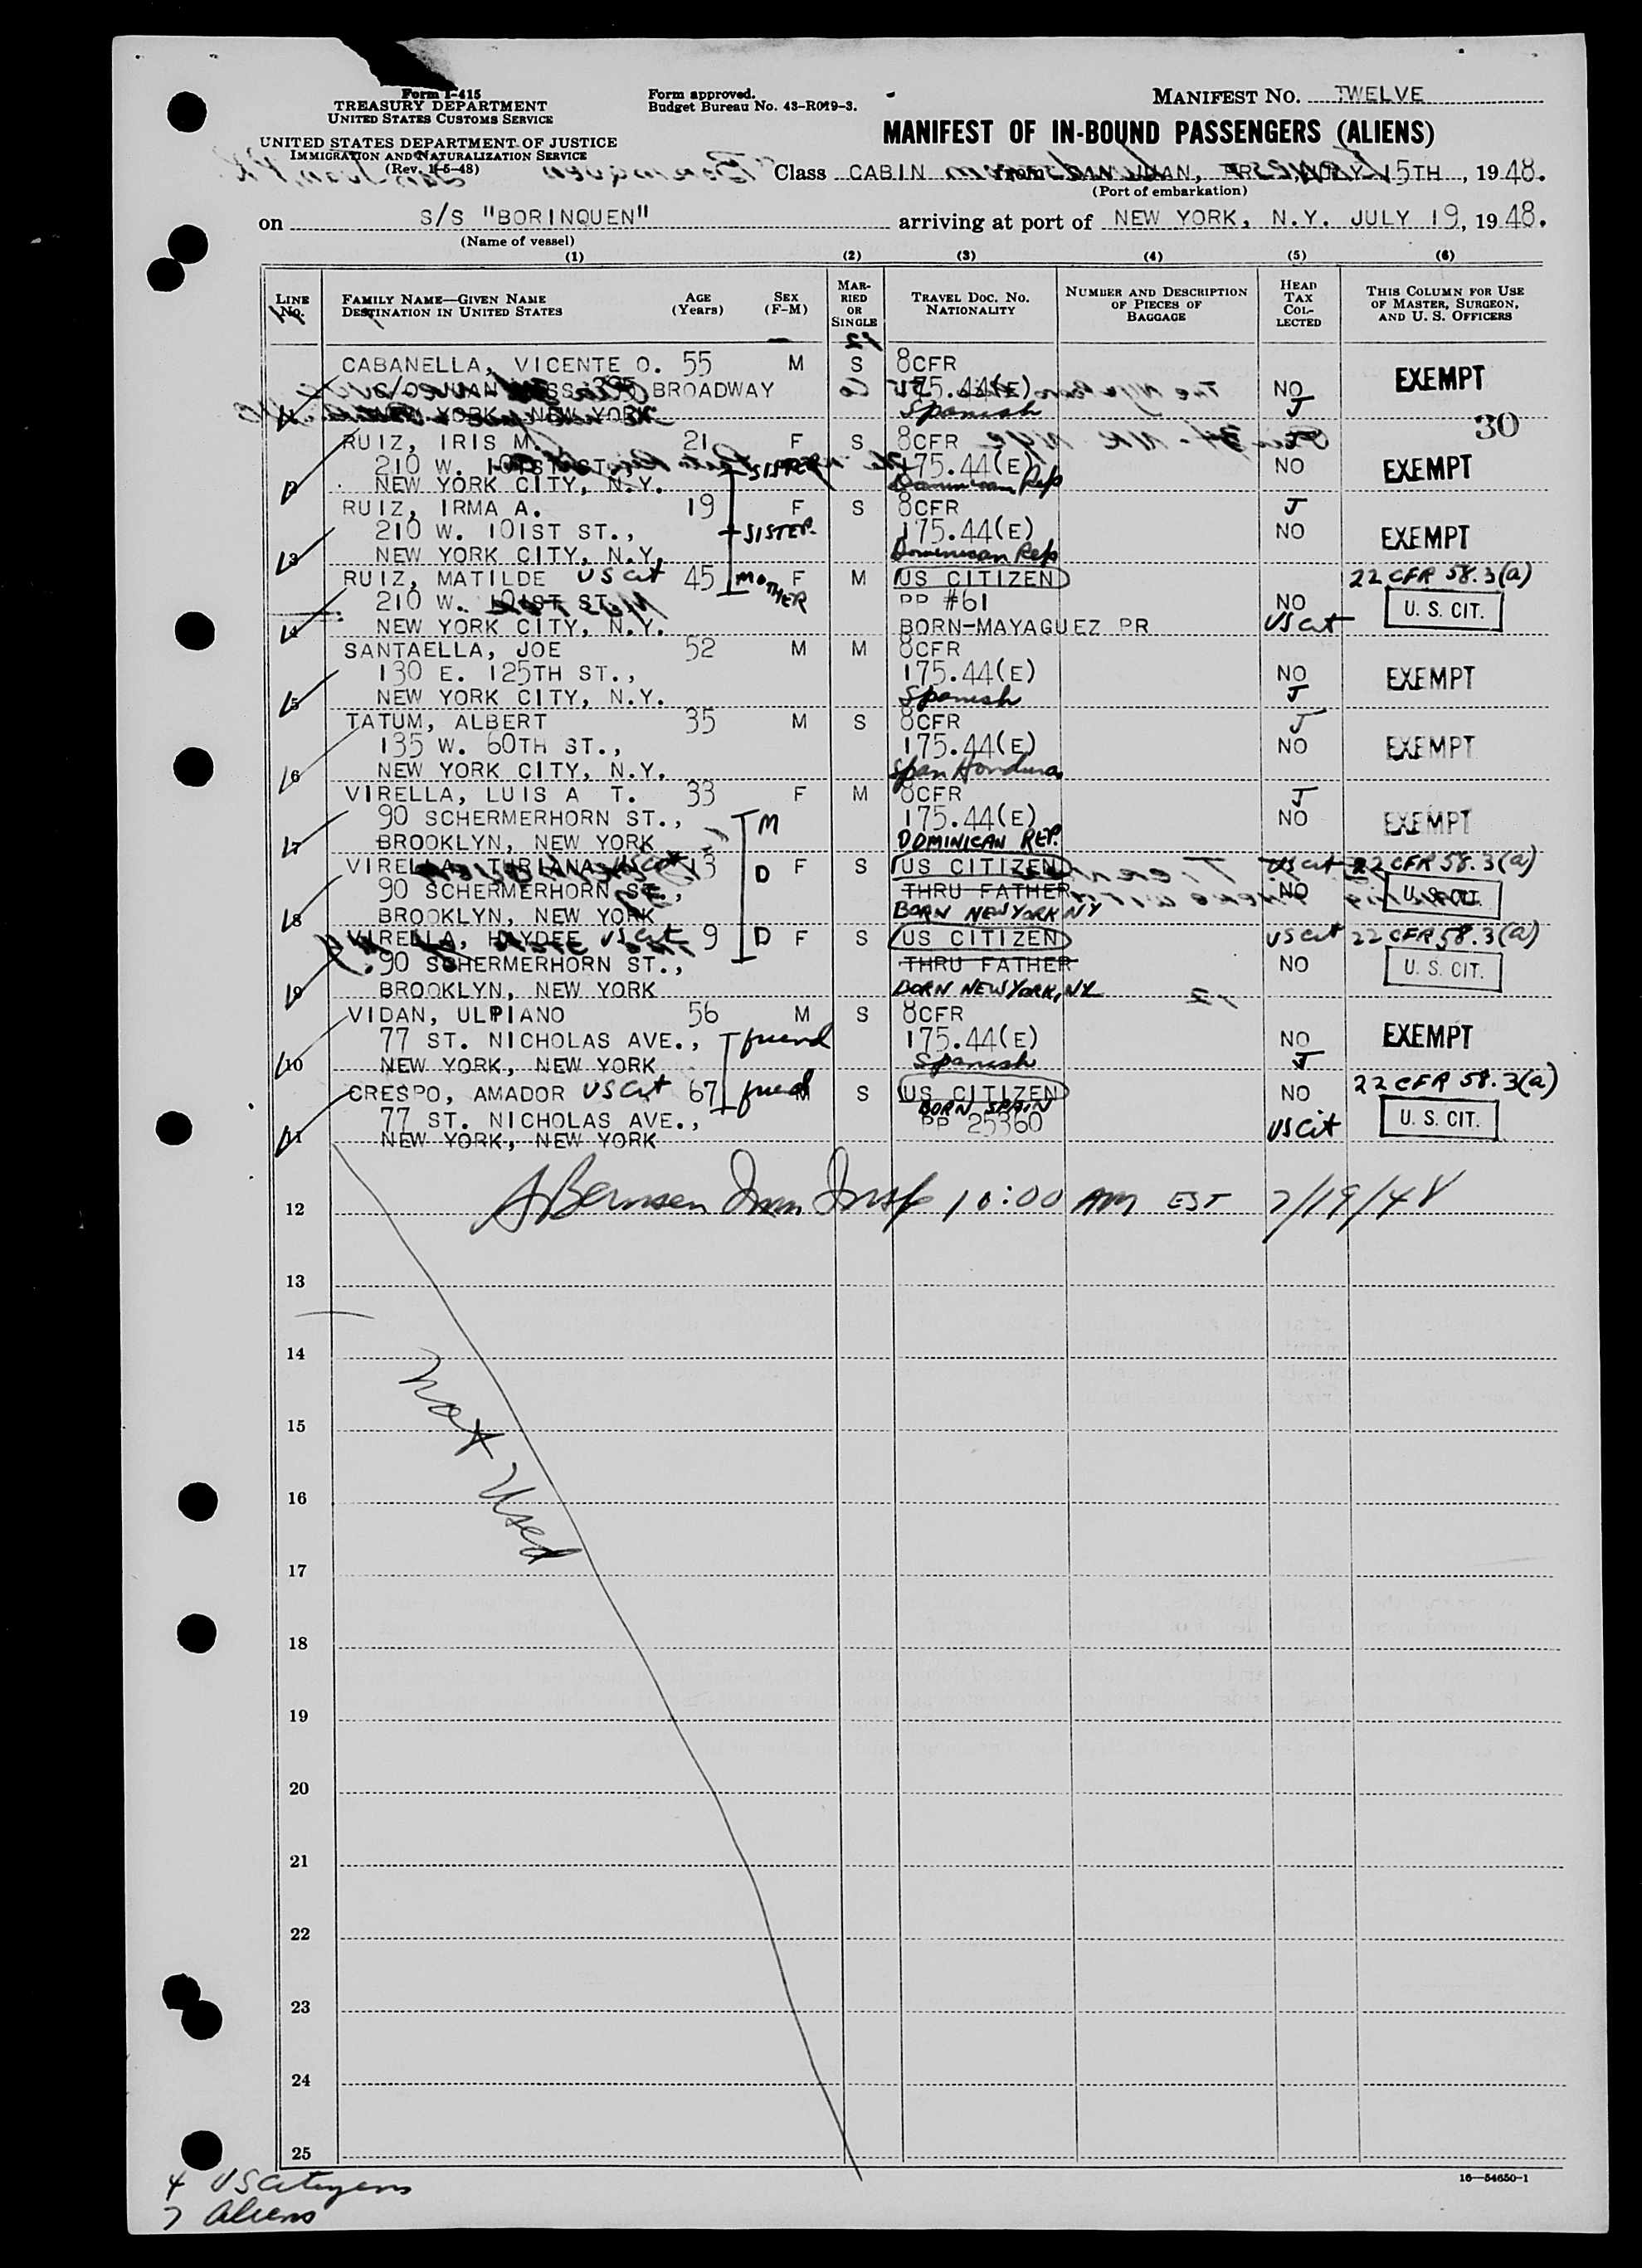 Form I-415
TREASURY DEPARTMENT
UNITED STATES CUSTOMS SERVICE
UNITED STATES DEPARTMENT OF JUSTICE
IMMIGRATION AND NATURALIZATION SERVICE
(Rev. 1-5-48)
Form approved.
Budget Bureau No. 43-R019-3.
MANIFEST NO. TWELVE
MANIFEST OF IN-BOUND PASSENGERS (ALIENS)
Class CABIN from SAN JUAN, PR., JULY 15TH, 1948.
(Port of embarkation)
on S/S "BORINQUEN" arriving at port of NEW YORK, N.Y. JULY 19, 1948.
(Name of vessel)
(1) (2) (3) (4) (5) (6)
LINE No. FAMILY NAME—GIVEN NAME DESTINATION IN UNITED STATES AGE (Years) SEX (F-M) MARRIED OR SINGLE TRAVEL DOC. NO. NATIONALITY NUMBER AND DESCRIPTION OF PIECES OF BAGGAGE HEAD TAX COLLECTED THIS COLUMN FOR USE OF MASTER, SURGEON, AND U. S. OFFICERS
CABANELLA, VICENTE O. 55 M S 8CFR EXEMPT
BROADWAY 175.44(E) NO
1 NEW YORK, NEW YORK Spanish J
30
RUIZ, IRIS M. 21 F S 8CFR
210 W. 101ST ST., SISTER 175.44(E) NO EXEMPT
2 NEW YORK CITY, N.Y. Dominican Rep
RUIZ, IRMA A. 19 F S 8CFR J
210 W. 101ST ST., SISTER 175.44(E) NO EXEMPT
3 NEW YORK CITY, N.Y. Dominican Rep
RUIZ, MATILDE US cit 45 MOTHER F M US CITIZEN 22 CFR 58.3(a)
210 W. 101ST ST. PP #61 NO U. S. CIT.
4 NEW YORK CITY, N.Y. BORN-MAYAGUEZ PR US cit
SANTAELLA, JOE 52 M M 8CFR
130 E. 125TH ST., 175.44(E) NO EXEMPT
5 NEW YORK CITY, N.Y. Spanish J
TATUM, ALBERT 35 M S 8CFR J
135 W. 60TH ST., 175.44(E) NO EXEMPT
6 NEW YORK CITY, N.Y. Span Honduras
VIRELLA, LUIS A T. 33 F M 8CFR J
90 SCHERMERHORN ST., M 175.44(E) NO EXEMPT
7 BROOKLYN, NEW YORK DOMINICAN REP.
VIRELLA, US cit 13 D F S US CITIZEN US cit 22 CFR 58.3(a)
90 SCHERMERHORN ST., THRU FATHER NO U. S. CIT.
8 BROOKLYN, NEW YORK BORN NEW YORK NY
VIRELLA, HAYDEE US cit 9 D F S US CITIZEN US cit 22 CFR 58.3(a)
90 SCHERMERHORN ST., THRU FATHER NO U. S. CIT.
9 BROOKLYN, NEW YORK BORN NEW YORK, NY
VIDAN, ULPIANO 56 M S 8CFR
77 ST. NICHOLAS AVE., friend 175.44(E) NO EXEMPT
10 NEW YORK, NEW YORK Spanish J
CRESPO, AMADOR US cit 67 friend M S US CITIZEN NO 22 CFR 58.3(a)
BORN SPAIN
77 ST. NICHOLAS AVE., PP 25360 US cit U. S. CIT.
11 NEW YORK, NEW YORK
12 Imm Insp 10:00 AM EST 7/19/48
13
14
15
16
17
18
19
20
21
22
23
24
25
Not Used
16—54650-1
4 US Citizens
7 Aliens